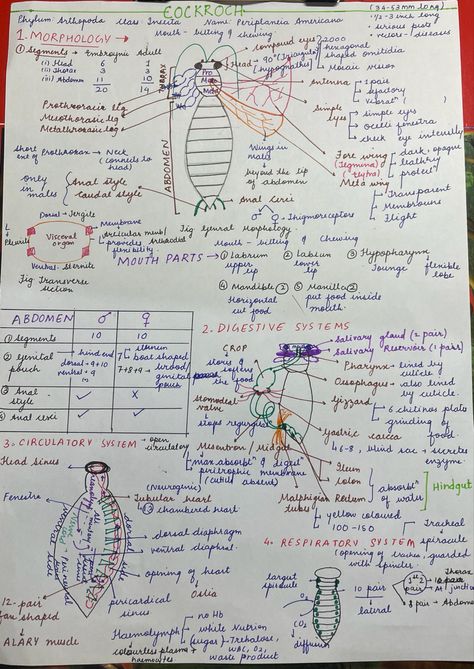 COCKROCH
Phylum: Arthopoda Class: Insecta Name: Periplaneta Americana
(34-53mm long)
• 1/2-3 inch long
• serious pests
• vectors - diseases
1. MORPHOLOGY →
Mouth - bitting & chewing
① Segments → Embryonic Adult
(i) Head 6 1
(ii) Thorax 3 3
(iii) Abdomen 11 10
20 14
compound eyes → 2000
hexagonal shaped omitidia
mosaic vision
Head - 90° (Triangular)
[hypognathus]
Pro
Meso
Meta
THORAX
ABDOMEN
Prothroracic leg
Mesothoracic leg
Metathroraxic leg
antenna
1 pair
simple eyes
simple eyes
ocelli fenestra
check eye intensity
short ext of Prothroxan → Neck
(connects to head)
Wings in male
beyond the tip of abdomen
Fore wing
(Tegmina)
dark, opaque
leathry
protect
Meta wing
Transparent
Membraneous
flight
only in males
Anal style
caudal style
Anal cerci
♂ ♀ → Thigmoreceptors
Dorsal → Tergite
Pleurite
Visceral organ
Membrane
provides flexibility
Ventral - Sternite
Fig Transverse section
Fig General Morphology
Mouth - bitting & Chewing
MOUTH PARTS →
① Labrum
upper lip
② Labium
lower lip
③ Hypopharynx
Tounge
flexible lobe
④ Mandible ②
Horizontal
cut food
⑤ Maxilla ②
put food inside mouth
ABDOMEN ♂ ♀
① segments 10 10
② Genital pouch
→ hind end
dorsal → 9+10
ventral → 9
7th sternum
boat shaped
7+8+9 → brood/genital pouch
③ Anal style ✓ X
④ Anal cerci ✓ ✓
2. DIGESTIVE SYSTEMS
CROP
stores & softens the food
stomodeal valve
stops regurgitation
Salivary gland (2 pairs)
Salivary Reservoir (1 pairs)
Pharynx - lined by cuticle
Oesophagus - also lined by cuticle.
Gizzard
6 chitinos plate
grinding of food.
Gastric caeca
6-8, blind sac → secretes enzyme.
Mesentron / Midgut
max. absorbtn & digestn
peritrophic membrane
(cuticle absent)
Ileum
colon
Rectum
absorbtn of water
Hindgut
Malphigian tubes
yellow coloured
100-150
3. CIRCULATORY SYSTEM → open circulatory
Head sinus
Fenestre
(Neurogenic)
Tubular heart
13 chambered heart
dorsal diaphragm
ventral diaphrai.
opening of heart
Ostia
pericardial sinus
12-pair
fan shaped
ALARY muscle
Haemolymph
no Hb
white Nutrion
(sugar) - Trehalose, WBC, O2, waste product
colourless plasma + haemocytes
4. RESPIRATORY SYSTEM
Tracheal
spiracule
(opening of trachea, guarded with spincter.
largest spiracle
O2
CO2
diffusion
10 pair
lateral
Thorax
1st 2 pair
8 pair → Abdomen